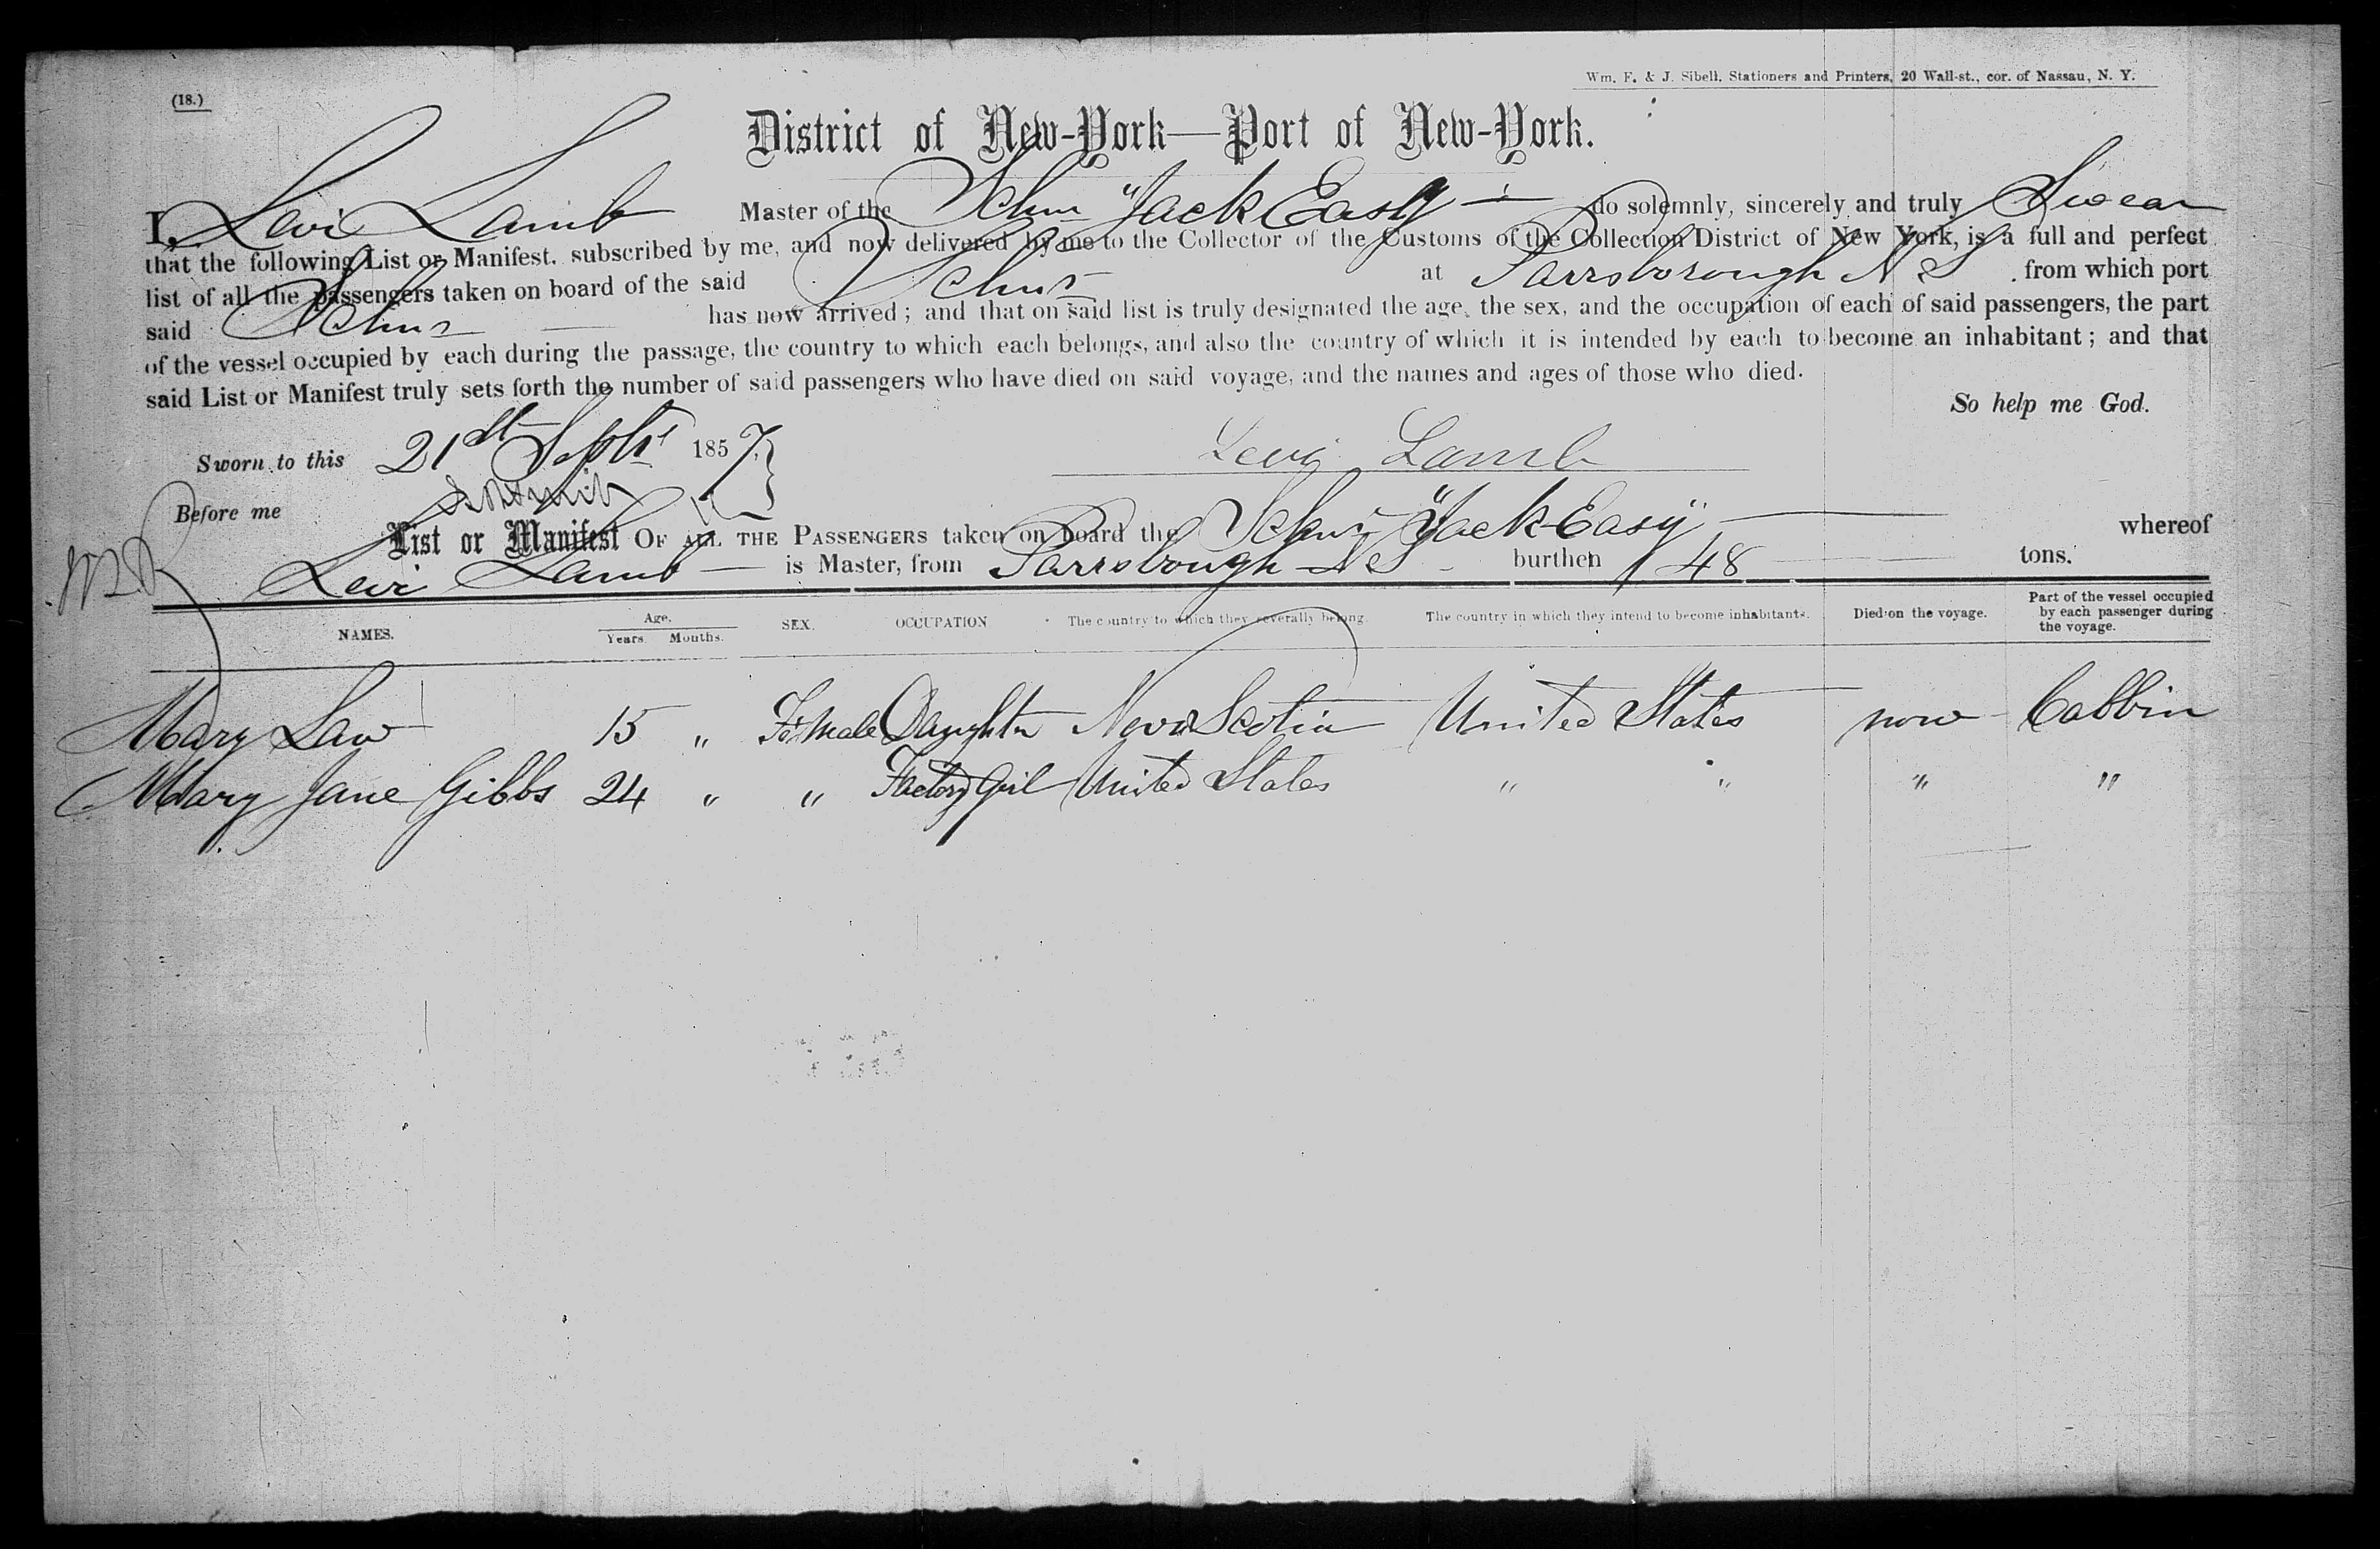 Wm. F. & J. Sibell, Stationers and Printers, 20 Wall-st., cor. of Nassau, N. Y.
(18.)
District of New-York—Port of New-York.
I, Levi Lamb Master of the Schr "Jack Easy" do solemnly, sincerely and truly Swear
that the following List or Manifest, subscribed by me, and now delivered by me to the Collector of the Customs of the Collection District of New York, is a full and perfect
list of all the passengers taken on board of the said Schr at Parrsborough N S from which port
said Schr has now arrived; and that on said list is truly designated the age, the sex, and the occupation of each of said passengers, the part
of the vessel occupied by each during the passage, the country to which each belongs, and also the country of which it is intended by each to become an inhabitant; and that
said List or Manifest truly sets forth the number of said passengers who have died on said voyage, and the names and ages of those who died.
So help me God.
Sworn to this 21st Sept 1857 Levi Lamb
Before me
List or Manifest OF ALL THE PASSENGERS taken on board the Schr "Jack Easy" whereof
Levi Lamb is Master, from Parrsborough N S burthen 148 tons.
NAMES. Age. Years. Months. SEX. OCCUPATION The country to which they severally belong. The country in which they intend to become inhabitants. Died on the voyage. Part of the vessel occupied by each passenger during the voyage.
Mary Law 15 " Female Daughter Nova Scotia United States none Cabbin
Mary Jane Gibbs 24 " " Factory Girl United States " " " "